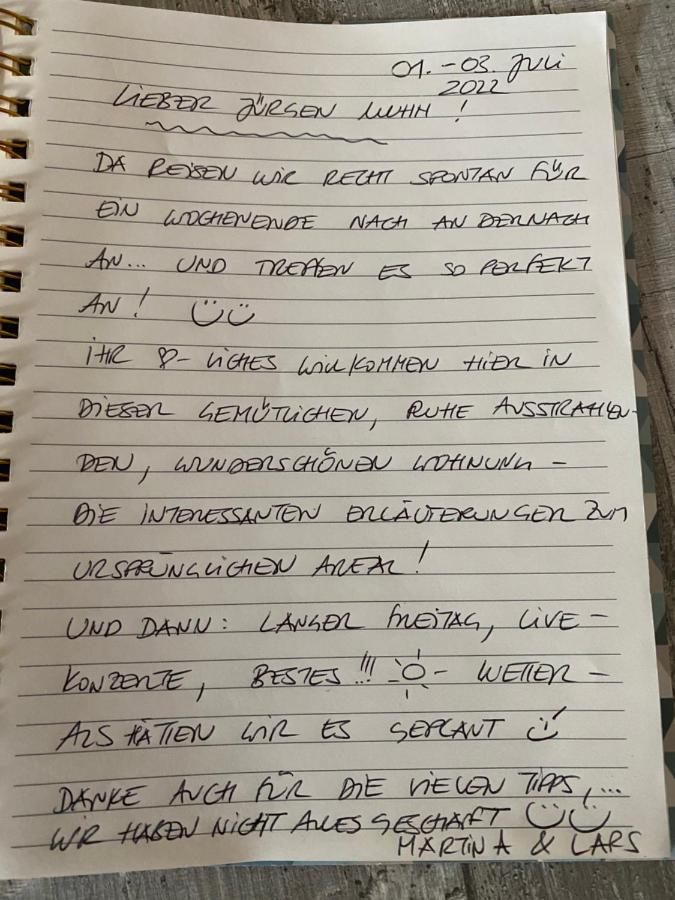 01. – 03. Juli
2022
LIEBER JÜRGEN MUHM !
DA REISEN WIR RECHT SPONTAN FÜR
EIN WOCHENENDE NACH ANDERNACH
AN... UND TREFFEN ES SO PERFEKT
AN! ☺☺
IHR ♡-LICHES WILLKOMMEN HIER IN
DIESER GEMÜTLICHEN, RUHE AUSSTRAHLEN-
DEN, WUNDERSCHÖNEN WOHNUNG –
DIE INTERESSANTEN ERLÄUTERUNGEN ZUM
URSPRÜNGLICHEN AREAL!
UND DANN: LANGER FREITAG, LIVE-
KONZERTE, BESTES!!! ☼- WETTER –
ALS HÄTTEN WIR ES GEPLANT ☺
DANKE AUCH FÜR DIE VIELEN TIPPS,...
WIR HABEN NICHT ALLES GESCHAFFT ☺☺
MARTINA & LARS